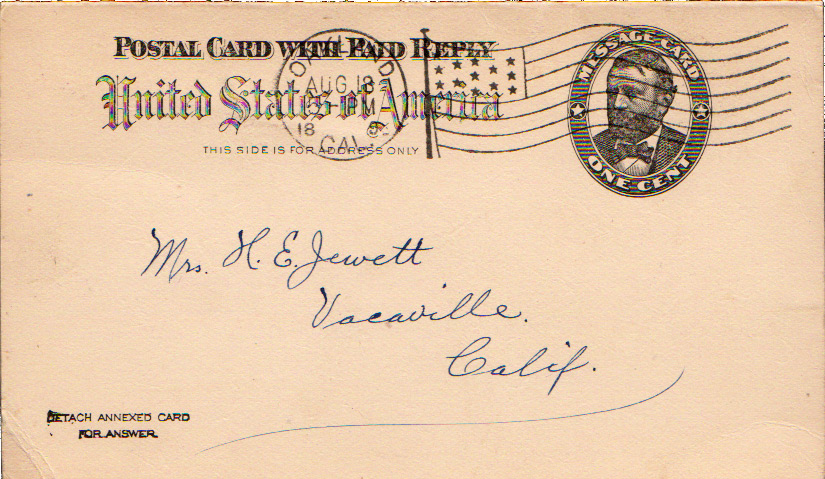 POSTAL CARD WITH PAID REPLY
United States of America
THIS SIDE IS FOR ADDRESS ONLY
OAKLAND
AUG 18
PM
18 9
CAL.
MESSAGE CARD
ONE CENT
Mrs. H. E. Jewett
Vacaville.
Calif.
DETACH ANNEXED CARD
FOR ANSWER.